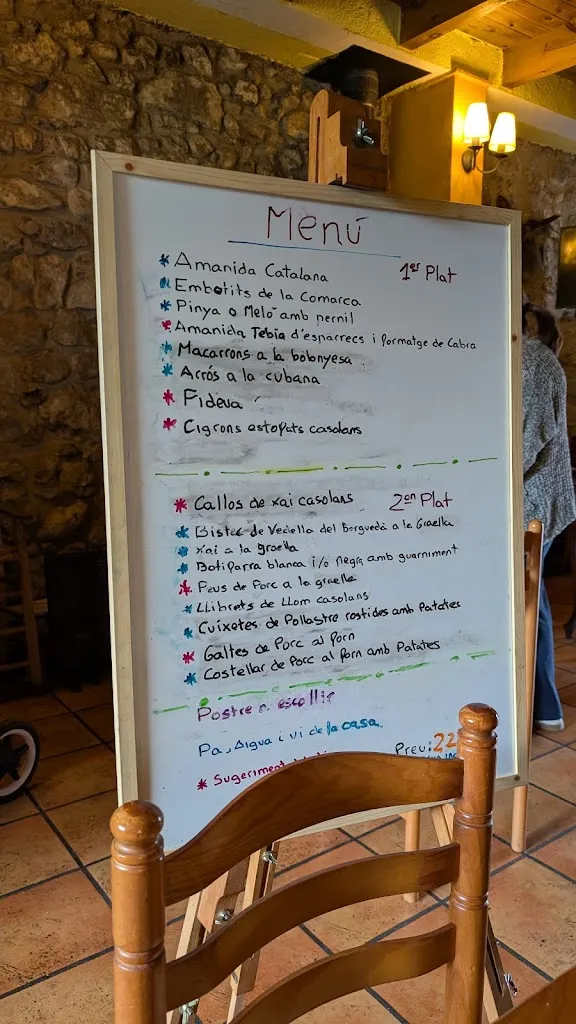 Menú
1er Plat
* Amanida Catalana
* Embotits de la Comarca
* Pinya o Meló amb pernil
* Amanida Tebia d'esparrecs i formatge de Cabra
* Macarrons a la bolonyesa
* Arrós a la cubana
* Fideua
* Cigrons estofats casolans
2on Plat
* Callos de xai casolans
* Bistec de Vedella del Berguedà a la Graella
* Xai a la graella
* Botifarra blanca i/o Negra amb guarniment
* Peus de Porc a la graella
* Llibrets de Llom casolans
* Cuixetes de Pollastre rostides amb Patates
* Galtes de Porc al forn
* Costellar de Porc al forn amb Patates
Postre a escollir
Pa, Aigua i vi de la casa
Preu: 22
* Sugeriment